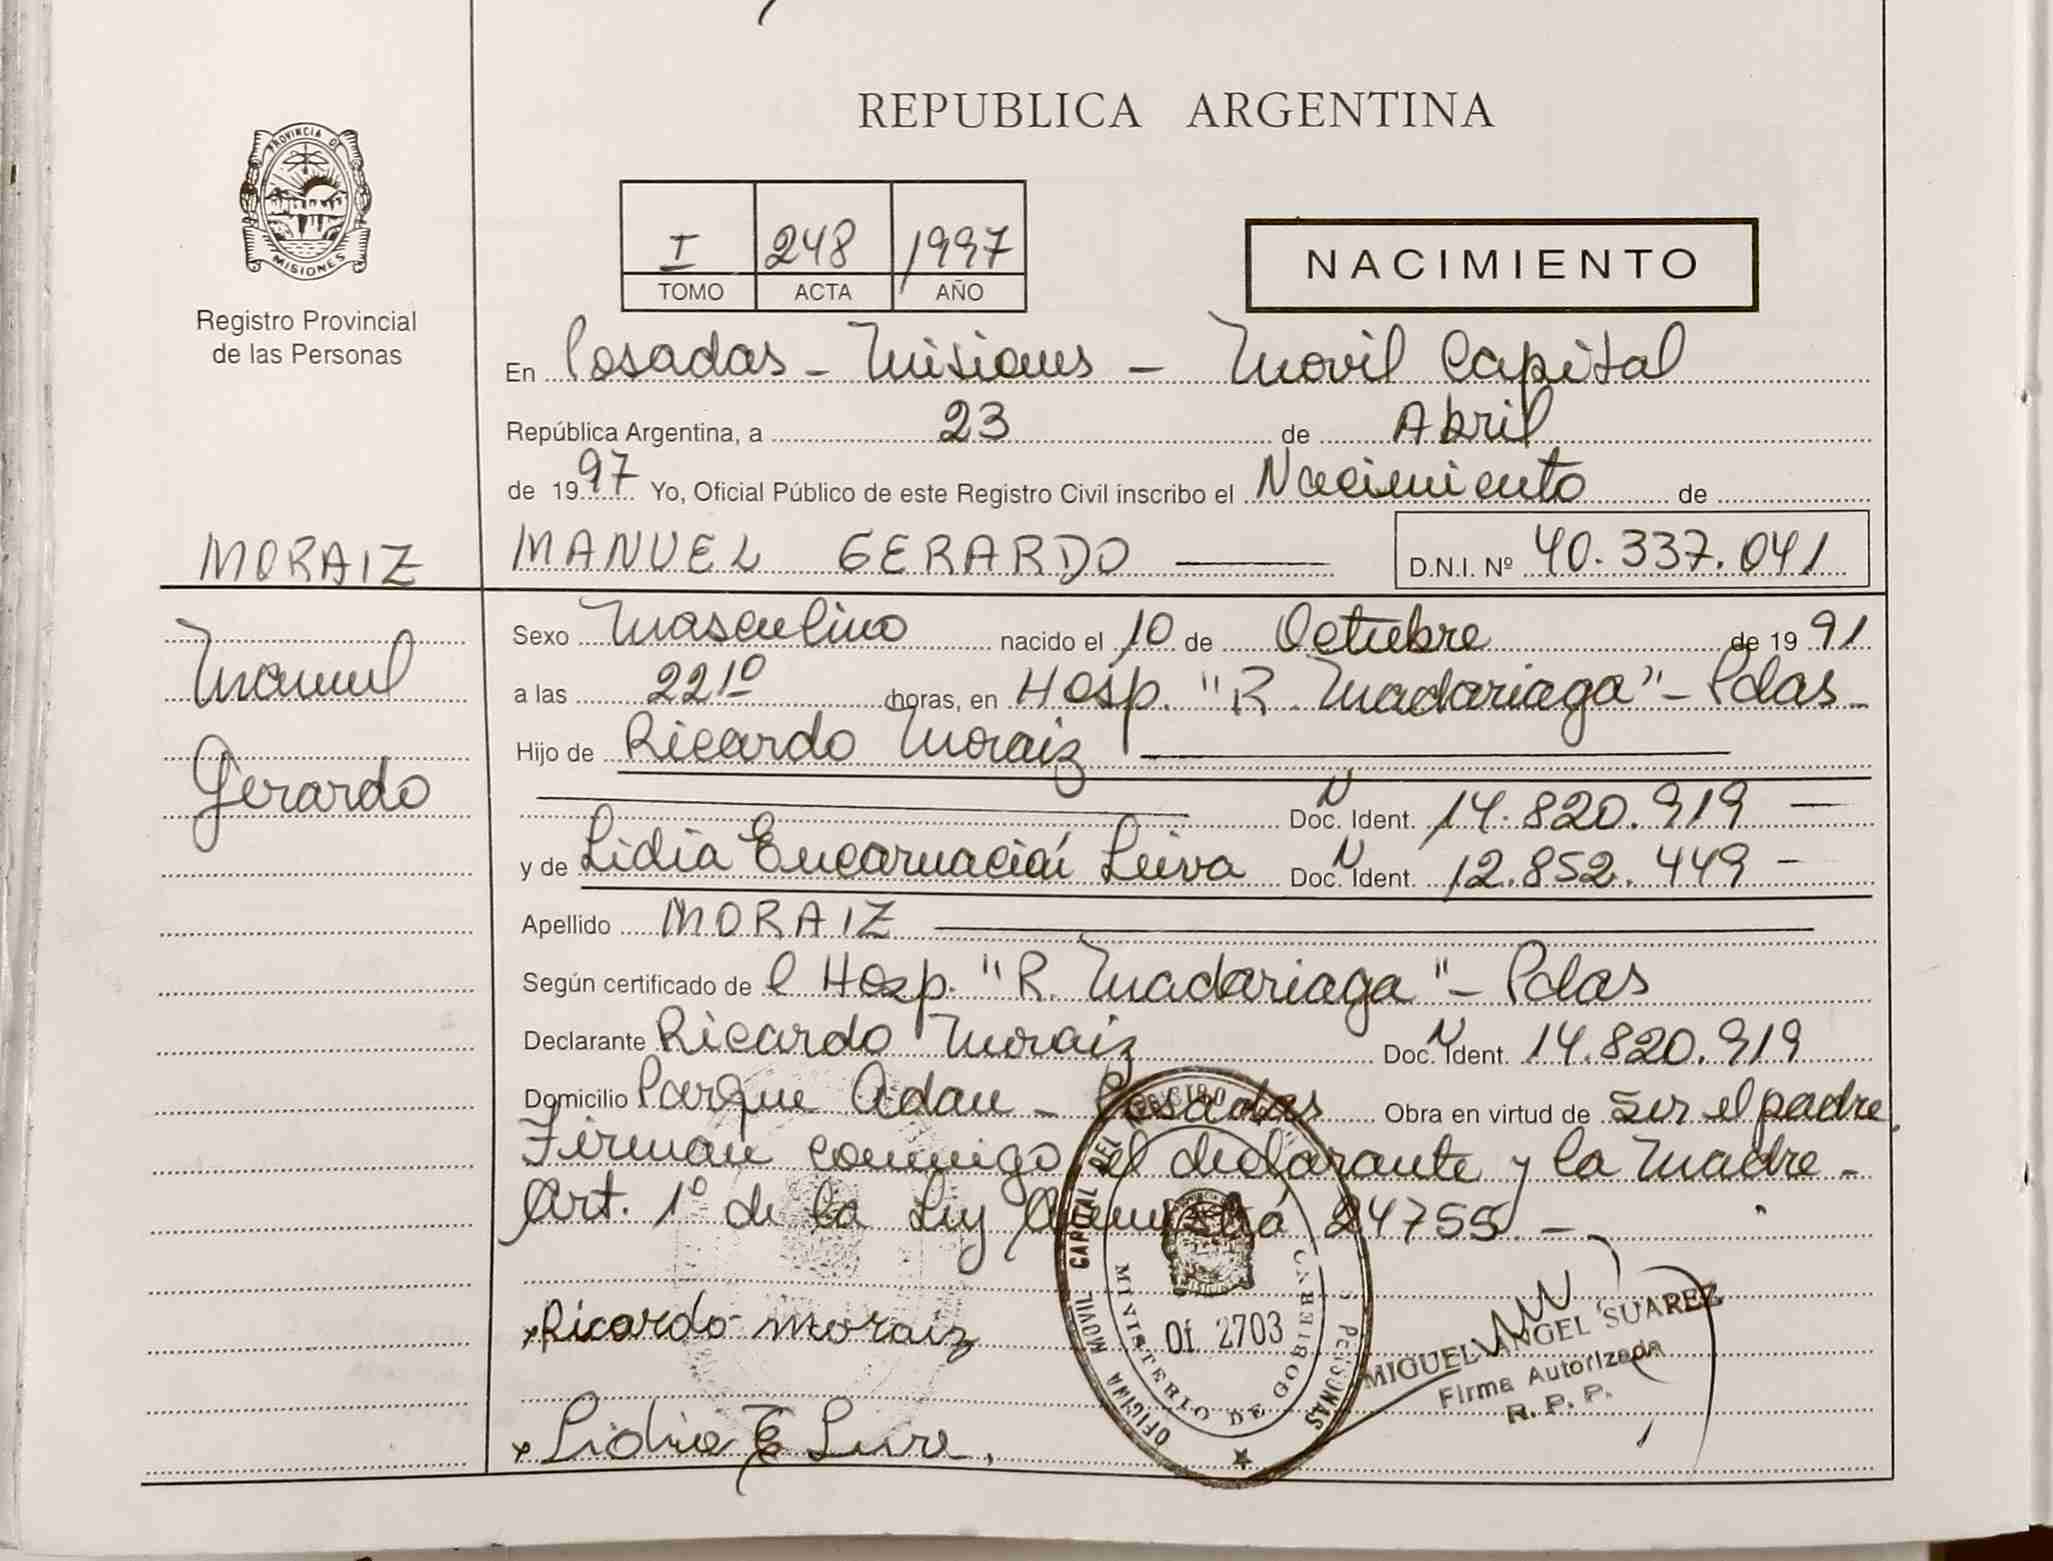 REPUBLICA ARGENTINA
PROVINCIA DE
MISIONES
Registro Provincial
de las Personas
I 248 1997
TOMO ACTA AÑO
NACIMIENTO
En Posadas - Misiones - Movil Capital
República Argentina, a 23 de Abril
de 1997 Yo, Oficial Público de este Registro Civil inscribo el Nacimiento de
MORAIZ MANUEL GERARDO D.N.I. Nº 40.337.041
Sexo Masculino nacido el 10 de Octubre de 1991
Manuel
a las 22 10 horas, en Hosp. "R. Madariaga" - Pdas -
Hijo de Ricardo Moraiz
Gerardo
N
Doc. Ident. 14.820.919 -
y de Lidia Encarnación Leiva Doc. N Ident. 12.852.449 -
Apellido MORAIZ
Según certificado de l Hosp. "R. Madariaga" - Pdas
Declarante Ricardo Moraiz Doc. N Ident. 14.820.919
Domicilio Parque Adan - Posadas Obra en virtud de ser el padre
Firman conmigo el declarante y la Madre -
Art. 1º de la Ley 24755. -
Ricardo moraiz
OFICINA MOVIL CAPITAL DEL REGISTRO PERSONAS
MINISTERIO DE GOBIERNO
Of 2703
MIGUEL ANGEL SUAREZ
Firma Autorizada
R. P. P.
Lidia E